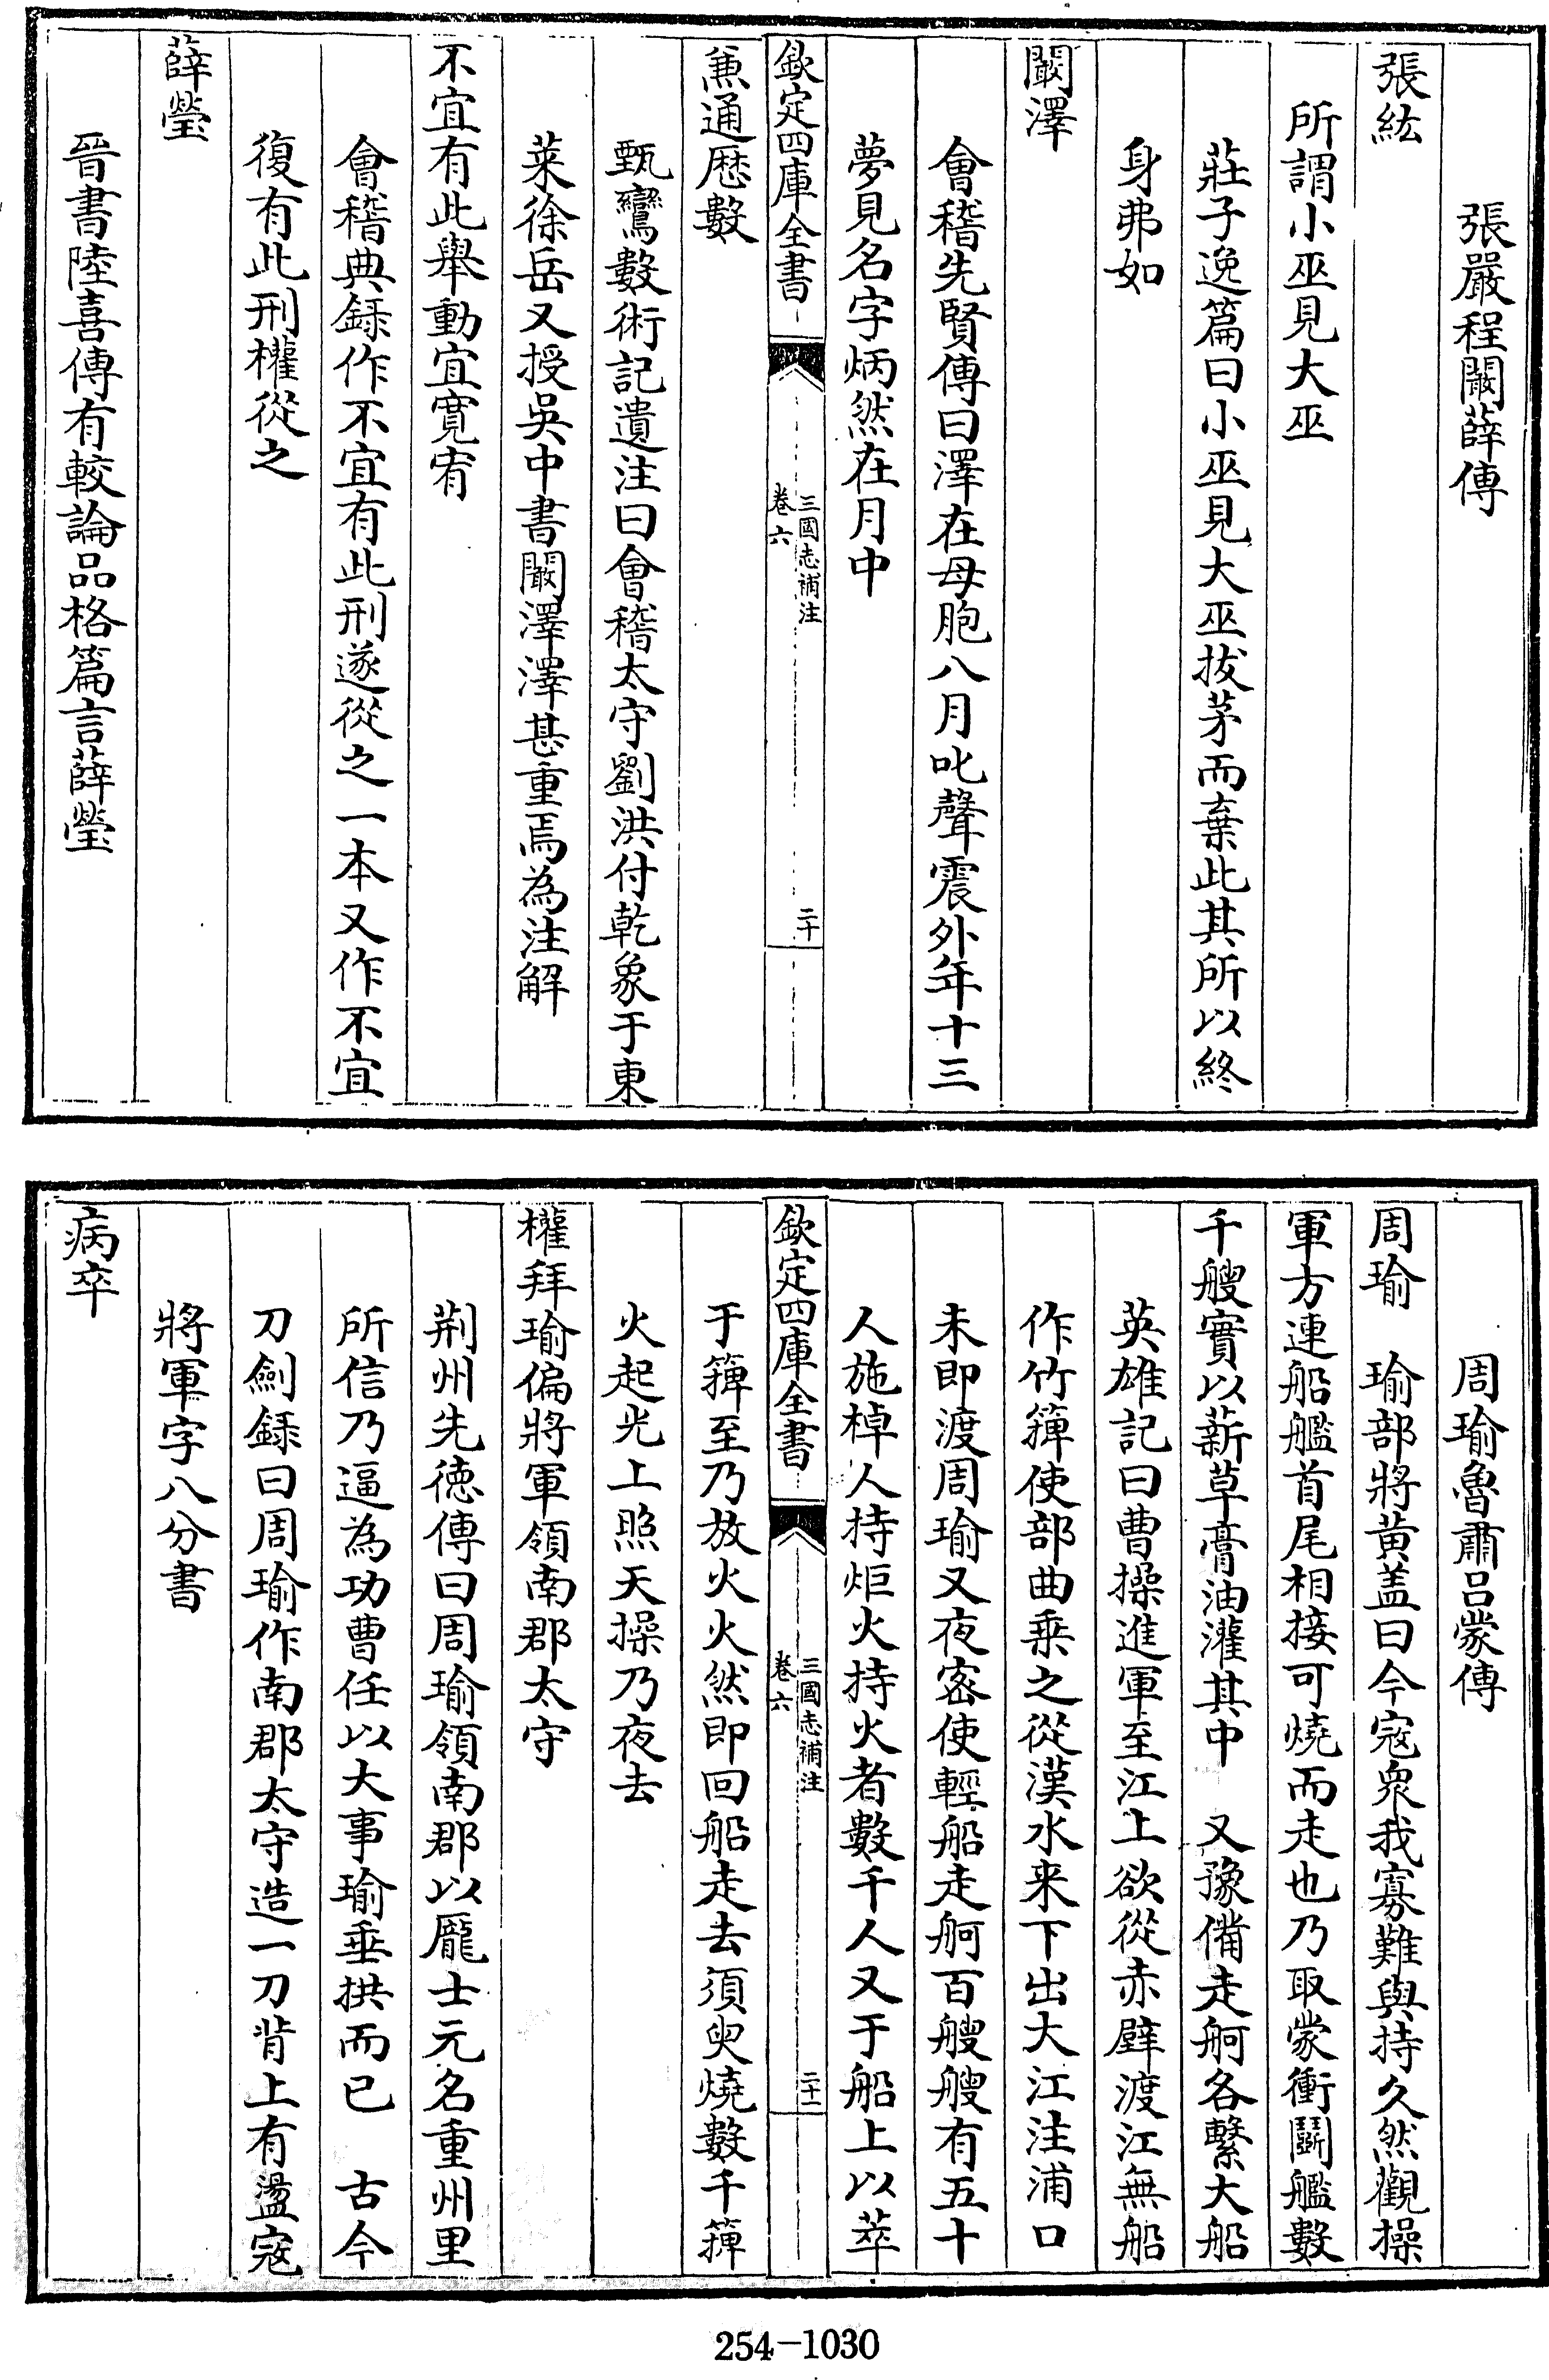 張嚴程闞薛傳
張紘
所謂小巫見大巫
莊子逸篇曰小巫見大巫拔茅而棄此其所以終
身弗如
闞澤
會稽先賢傳曰澤在母胞八月叱聲震外年十三
夢見名字炳然在月中
欽定四庫全書
三國志補注
卷六
二十
兼通厯數
甄鸞數術記遺注曰會稽太守劉洪付乾象于東
萊徐岳又授吳中書闞澤澤甚重焉為注解
不宜有此舉動宜寛宥
會稽典録作不宜有此刑遂從之一本又作不宜
復有此刑權從之
薛瑩
晉書陸喜傳有較論品格篇言薛瑩
周瑜魯肅呂蒙傳
周瑜　瑜部將黄盖曰今寇衆我寡難與持久然觀操
軍方連船艦首尾相接可燒而走也乃取蒙衝鬭艦數
千艘實以薪草膏油灌其中　又豫備走舸各繫大船
英雄記曰曹操進軍至江上欲從赤壁渡江無船
作竹簰使部曲乗之從漢水来下出大江注浦口
未即渡周瑜又夜宻使輕船走舸百艘艘有五十
人施棹人持炬火持火者數千人又于船上以萃
欽定四庫全書
三國志補注
卷六
二十一
于簰至乃放火火然即回船走去須臾燒數千簰
火起光上照天操乃夜去
權拜瑜偏將軍領南郡太守
荆州先徳傳曰周瑜領南郡以龐士元名重州里
所信乃逼為功曹任以大事瑜垂拱而已　古今
刀劍録曰周瑜作南郡太守造一刀背上有盪寇
將軍字八分書
病卒
254-1030